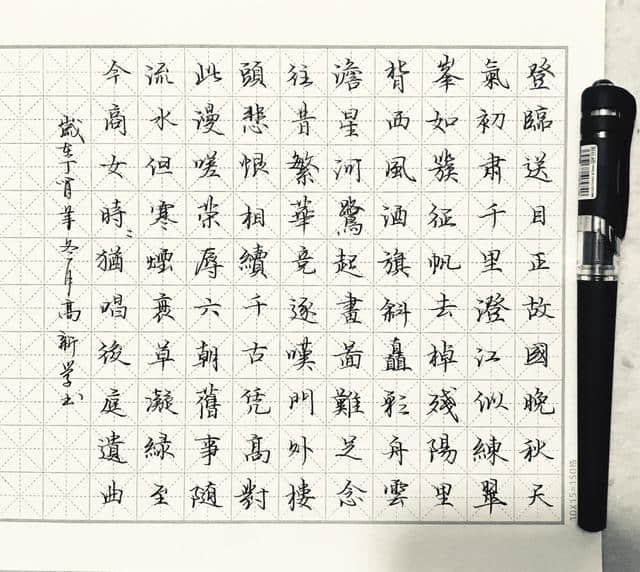 登臨送目正故國晚秋天
氣初肅千里澄江似練翠
峯如簇征帆去棹殘陽里
背西風酒旗斜矗彩舟雲
澹星河鷺起畫圖難足念
往昔繁華竞逐嘆門外樓
頭悲恨相續千古凭高對
此漫嗟榮辱六朝舊事隨
流水但寒煙衰草凝綠至
今商女時〻猶唱後庭遺曲
歲在丁酉年冬月高新学书
10X15=150格